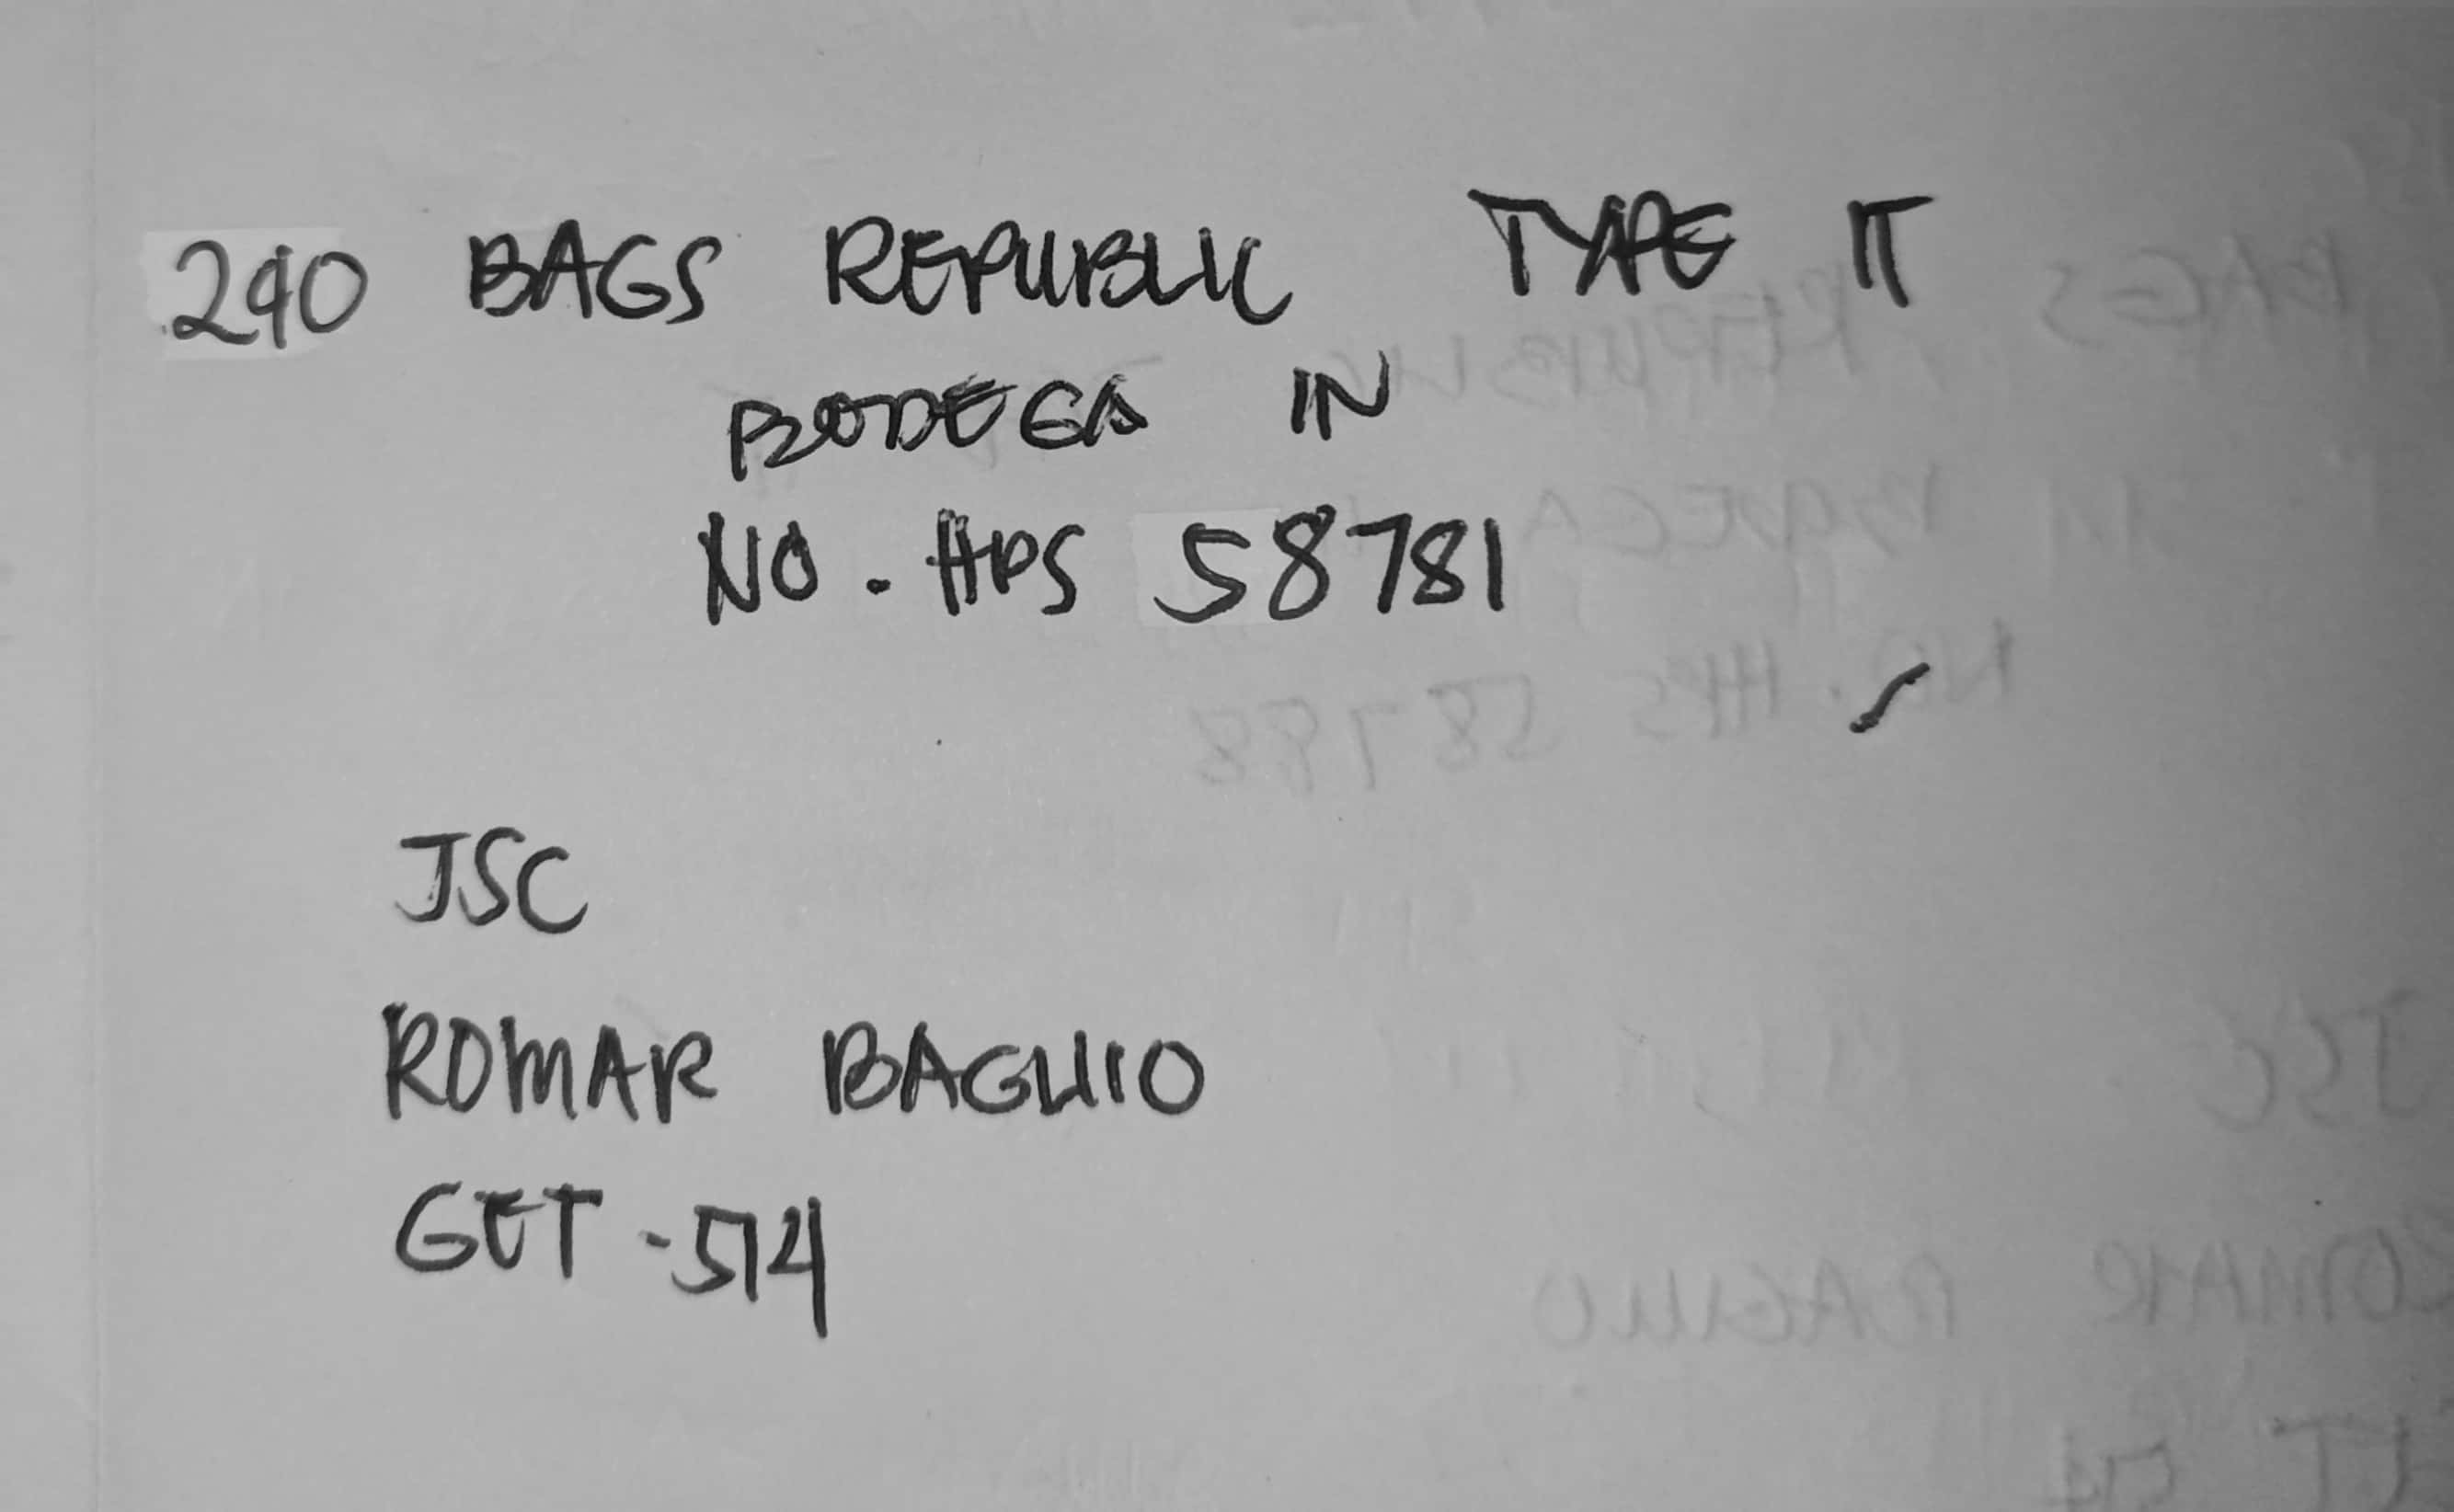 240 BAGS REPUBLIC TYPE IT
BODEGA IN
NO. HPS 58781
JSC
ROMAR BAGUIO
GET-514